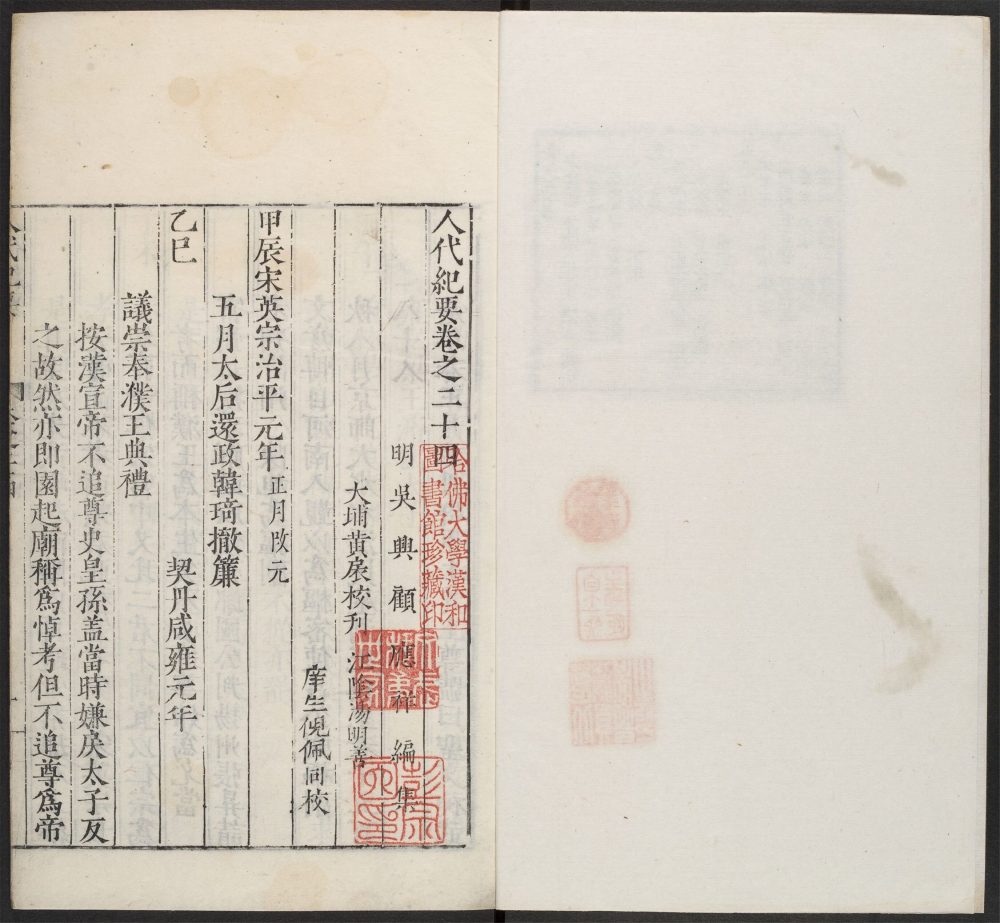 人代紀要卷之二十四
明吳興顧應祥編集
大埔黃扆校刋 江陰湯明善
庠生倪佩同校
甲辰宋英宗治平元年 正月改元
五月太后還政韓琦撤簾
乙巳 契丹咸雍元年
議崇奉濮王典禮
按漢宣帝不追尊史皇孫盖當時嫌戾太子反
之故然亦即園起廟稱爲悼考但不追尊爲帝
哈佛大學漢和
圖書館珍藏印